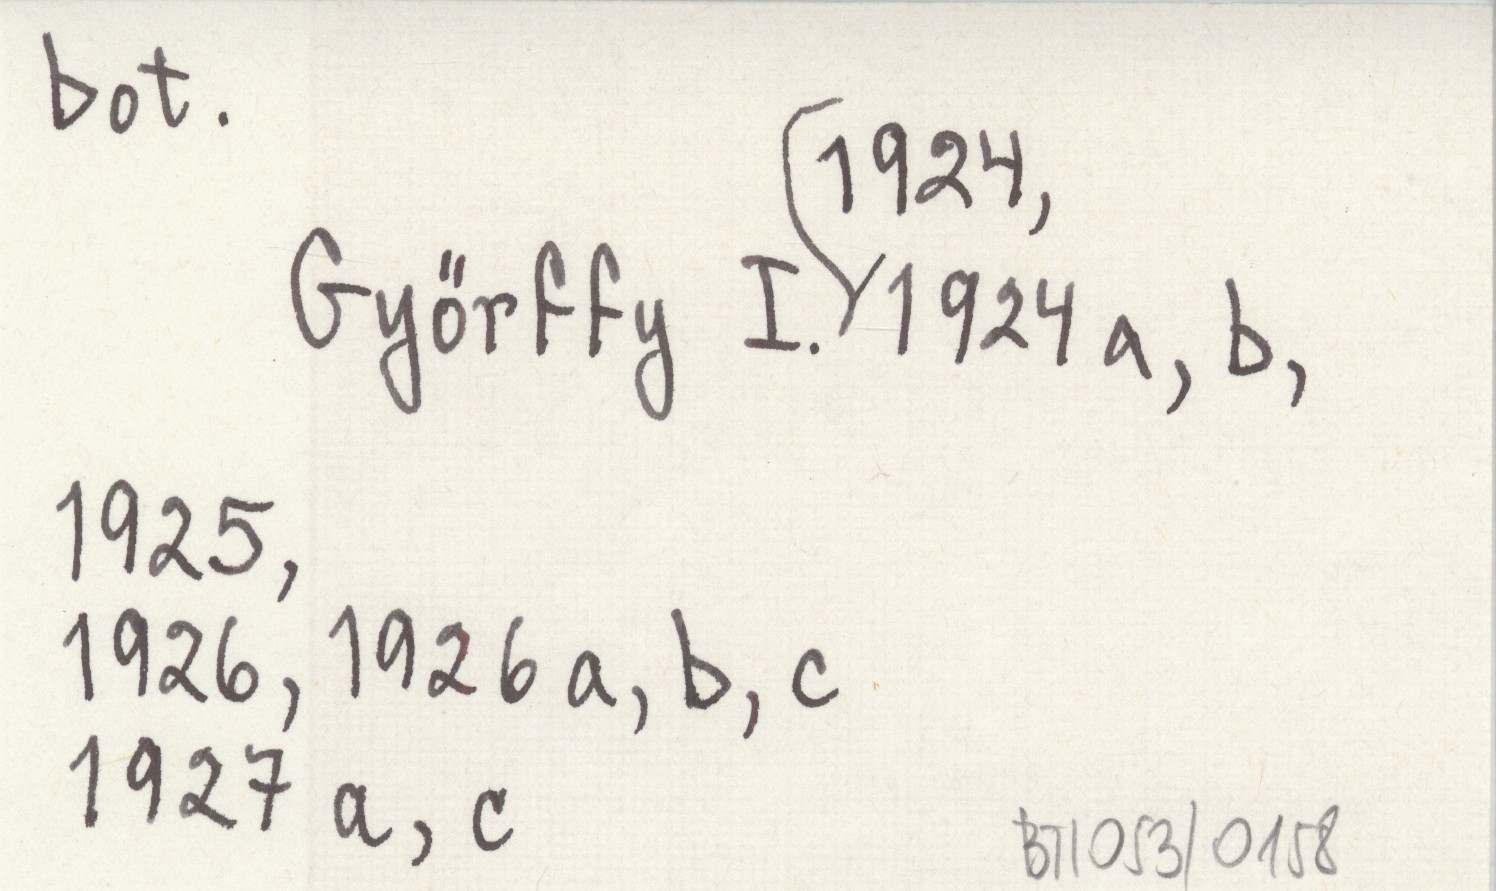 bot.
1924,
Györffy I. 1924 a, b,
1925,
1926, 1926 a, b, c
1927 a, c
BTI 053/0158